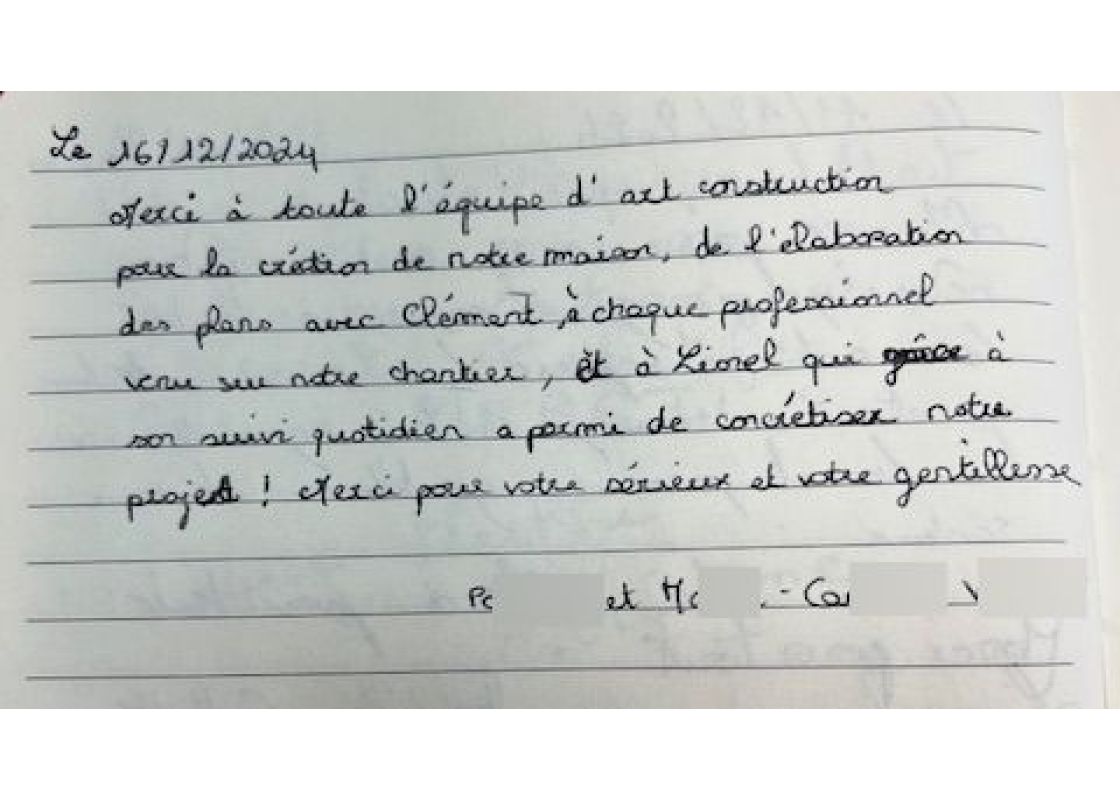 Le 16/12/2024
Merci à toute l'équipe d'art construction
pour la création de notre maison, de l'élaboration
des plans avec Clément, à chaque professionnel
venu sur notre chantier, et à Lionel qui grâce à
son suivi quotidien a permi de concrétiser notre
projet ! Merci pour votre sérieux et votre gentillesse
et